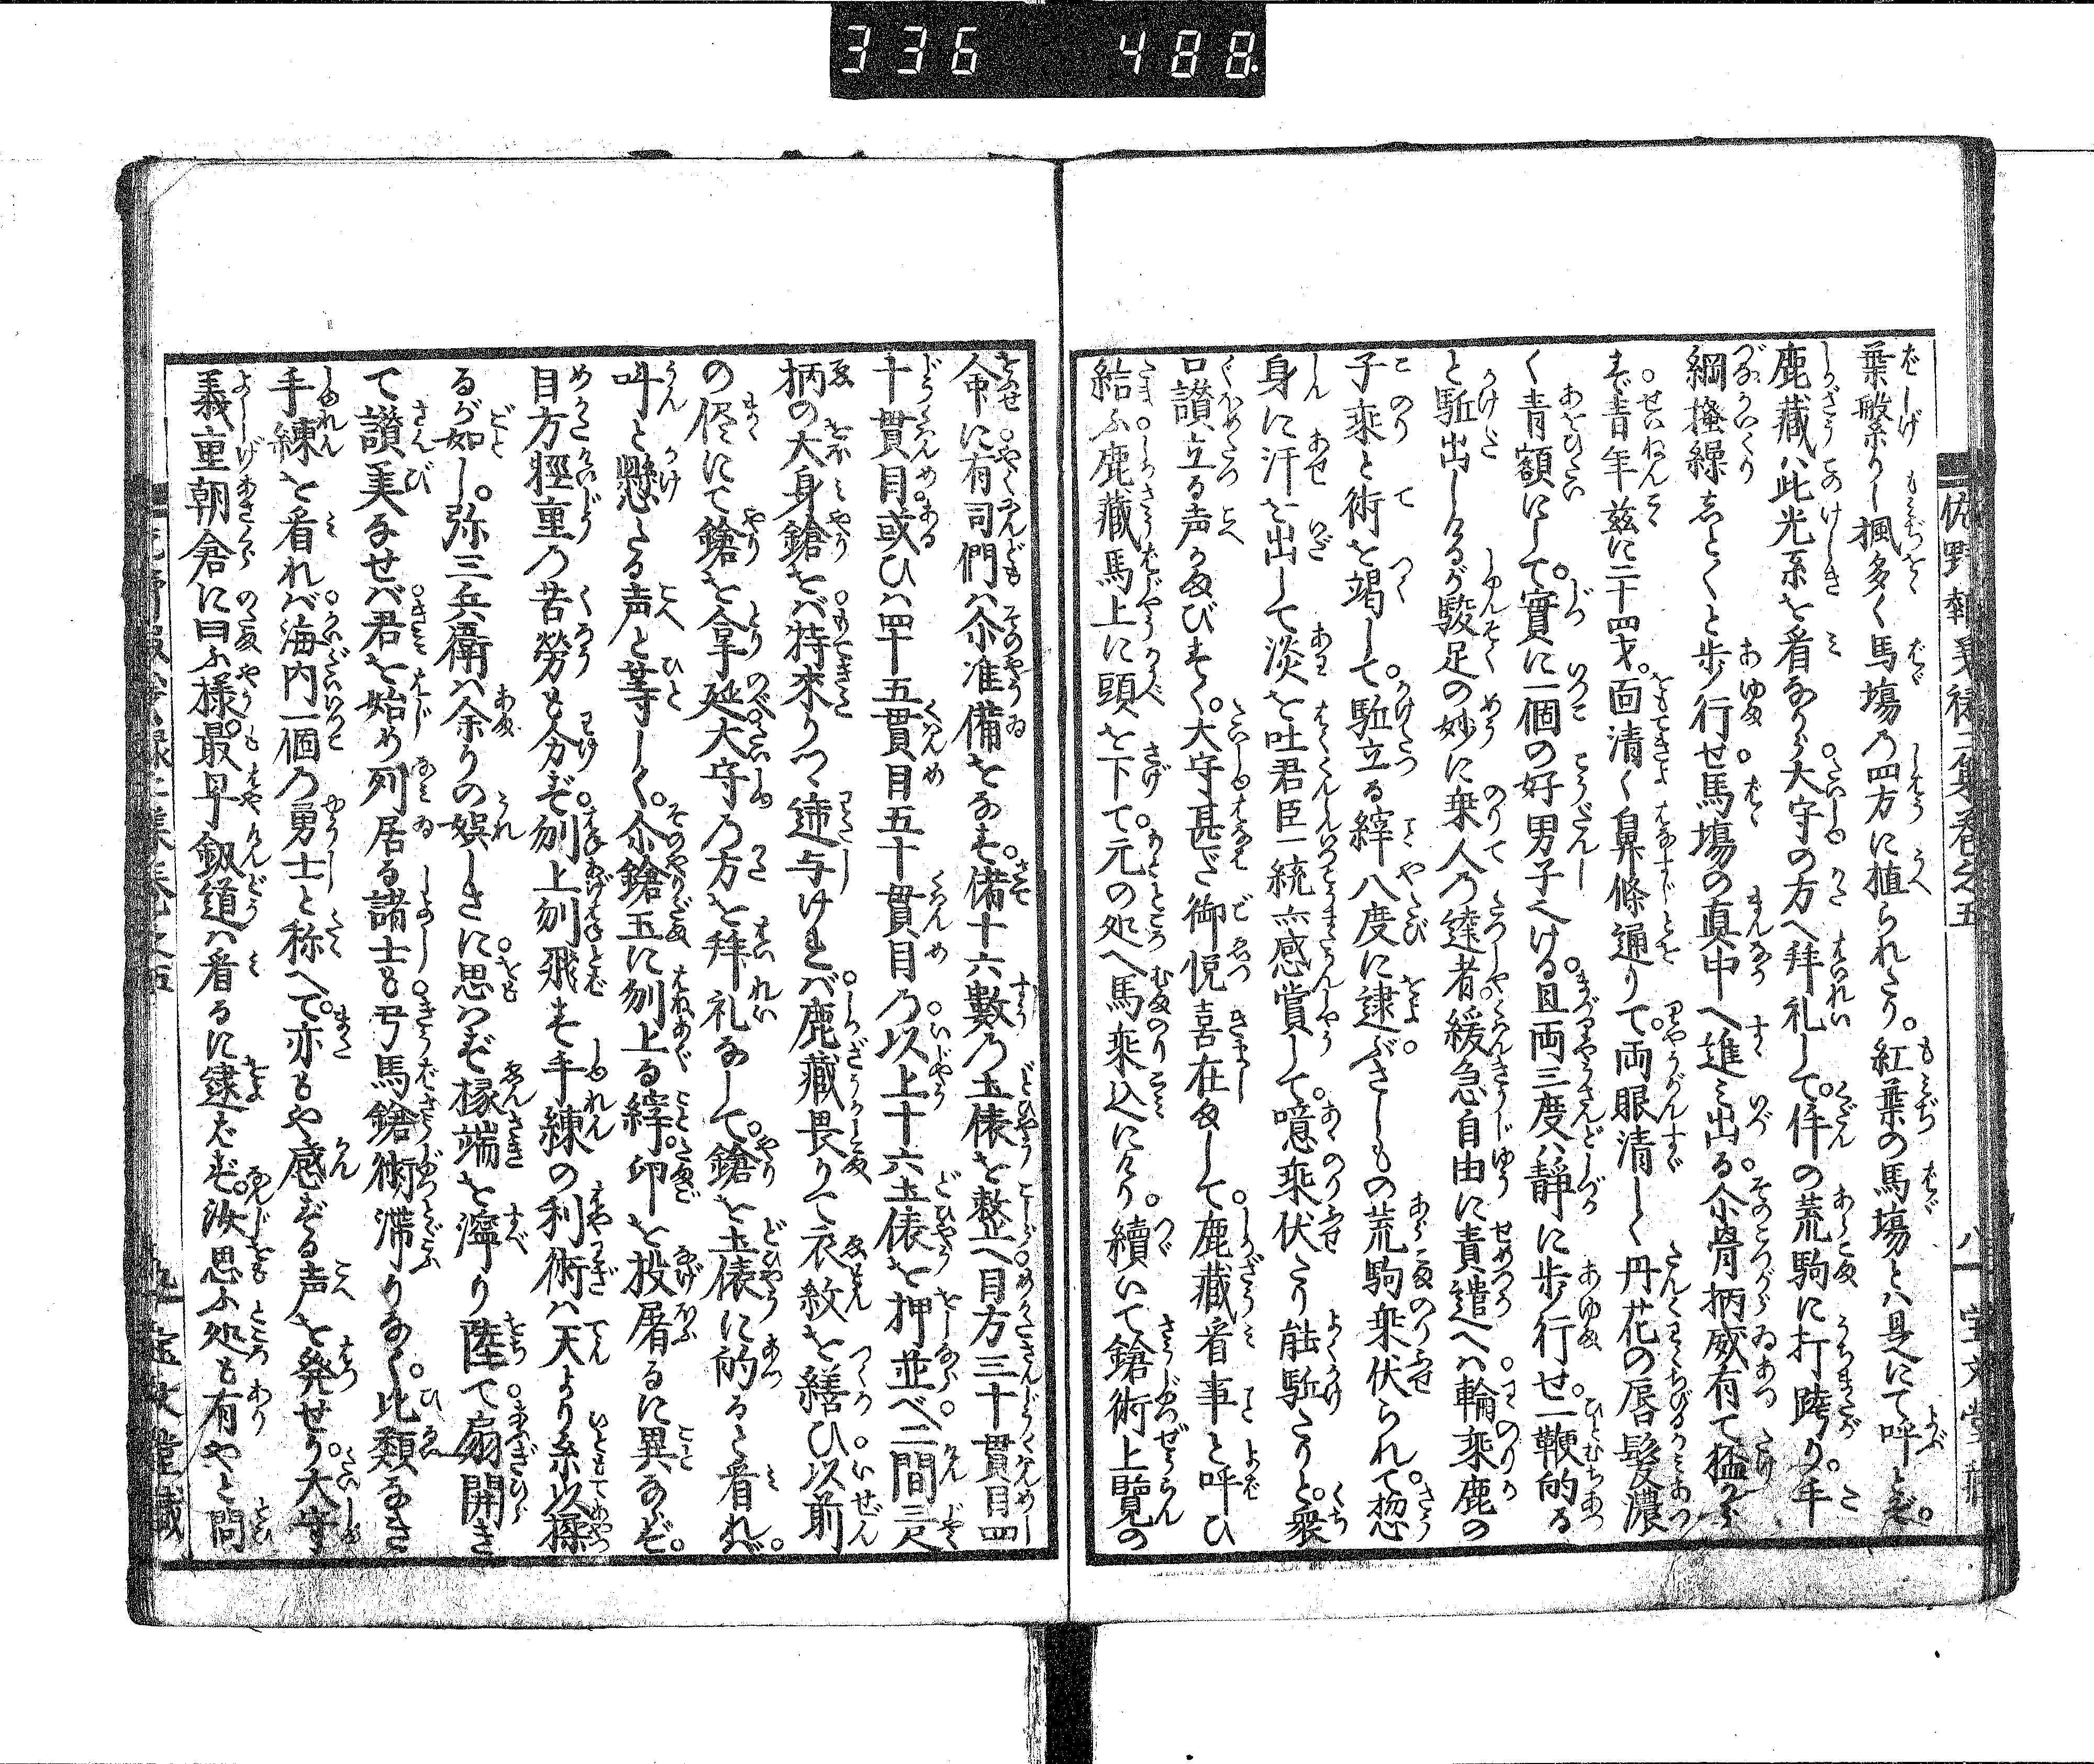 336 488
佐野報義録二集巻之五 八 宝文堂蔵
葉繁りし楓多く馬場の四方に植られたり。紅葉の馬場とは是にて呼とぞ。
鹿蔵は此光系を看ながら大守の方へ拝礼して。件の荒駒に打跨り。手
綱掻繰しと〱と歩行せ馬場の真中へ進み出る。尒骨柄威有て猛から
ず。青年茲に二十四才。面清く鼻條通りて。両眼清しく丹花の唇髪濃
く青額にして。實に一個の好男子へける。且両三度は静に歩行せ。一鞭的る
と駈出しけるが駿足の妙に乗人の達者。緩急自由に責遣へは輪乗鹿の
子乗と術を竭して。駈立る縡八度に逮ぶさしもの荒駒乗伏られて。惣
身に汗を出して淡を吐君臣一統亦感賞して。噫乗伏たり能駈たりと。衆
口讃立る声かまびすく。大守甚だ御悦喜在まして。鹿蔵看事と呼ひ
結ふ。鹿蔵馬上に頭を下て。元の処へ馬乗込にけり。續いて鎗術上覽の
命に。有司們は尒准備をなす。偖十六數の土俵を整へ目方三十貫目四
十貫目。或ひは四十五貫目五十貫目の以上十六土俵を押並べ。二間三尺
柄の大身鎗をば持来りつゝ遞与けれバ。鹿蔵畏りて衣紋を繕ひ。以前
の侭にて鎗を拿延。大守の方を拝礼なして。鎗を土俵に的ると看れば。
叫と懸たる声と等しく。尒鎗玉に刎上る縡。卯を投屠るに異ならず。
目方軽重の苦勞も分ず。刎上刎飛す手練の利術は天より糸以操
るが如し。弥三兵衛は余りの娯しさに。思はず椽端を濘り陸て。扇開き
て讃美なせば。君を始め列居る諸士も。弓馬鎗術滞りなく。比類なき
手練を看れば。海内一個の勇士と称へて。亦もや感ずる声を発せり。大守
義重朝倉に曰ふ様。最早釼道は看るに逮ばず。汝思ふ処も有やと問
二集巻之五 九 宝文堂蔵